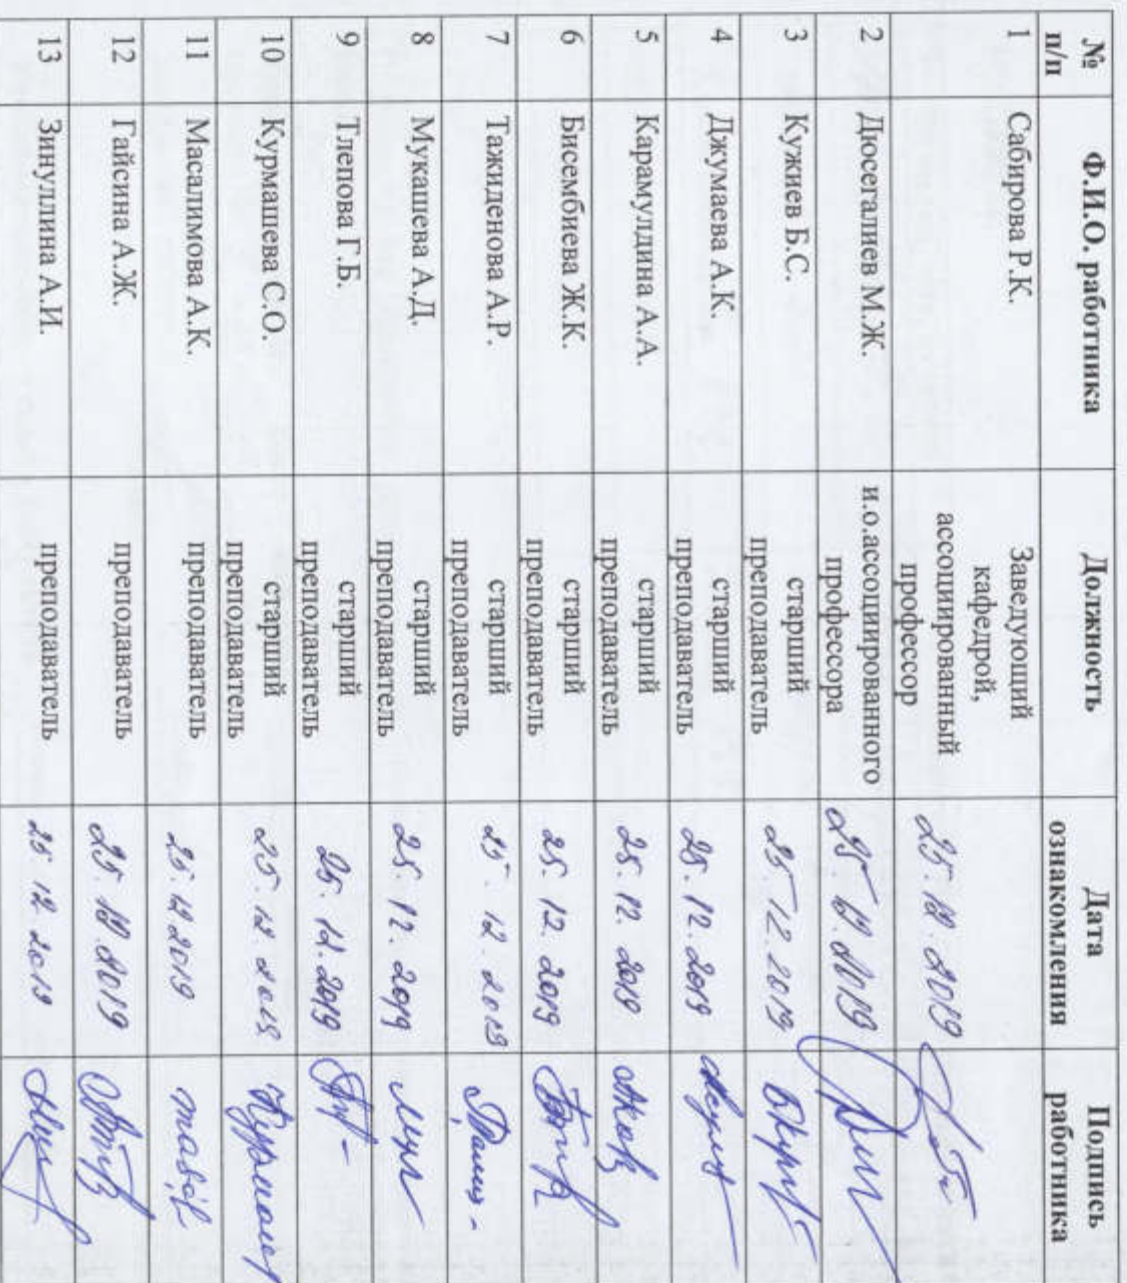 № п/п Ф.И.О. работника Должность Дата ознакомления Подпись работника
1 Сабирова Р.К. Заведующий кафедрой, ассоциированный профессор 25.12.2019
2 Дюсегалиев М.Ж. и.о.ассоциированного профессора 25.12.2019
3 Кужиев Б.С. старший преподаватель 25.12.2019
4 Джумаева А.К. старший преподаватель 25.12.2019
5 Карамулдина А.А. старший преподаватель 25.12.2019
6 Бисембиева Ж.К. старший преподаватель 25.12.2019
7 Тажиденова А.Р. старший преподаватель 25.12.2019
8 Мукашева А.Д. старший преподаватель 25.12.2019
9 Тлепова Г.Б. старший преподаватель 25.12.2019
10 Курмашева С.О. старший преподаватель 25.12.2019
11 Масалимова А.К. преподаватель 25.12.2019
12 Гайсина А.Ж. преподаватель 25.12.2019
13 Зинуллина А.И. преподаватель 25.12.2019